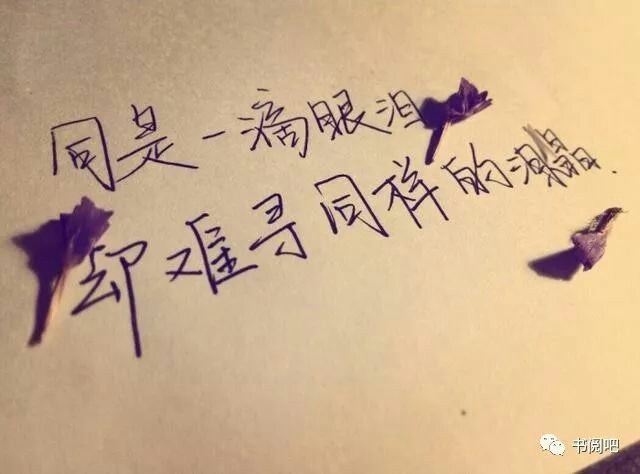 同是一滴眼泪
却难寻同样的
书阅吧